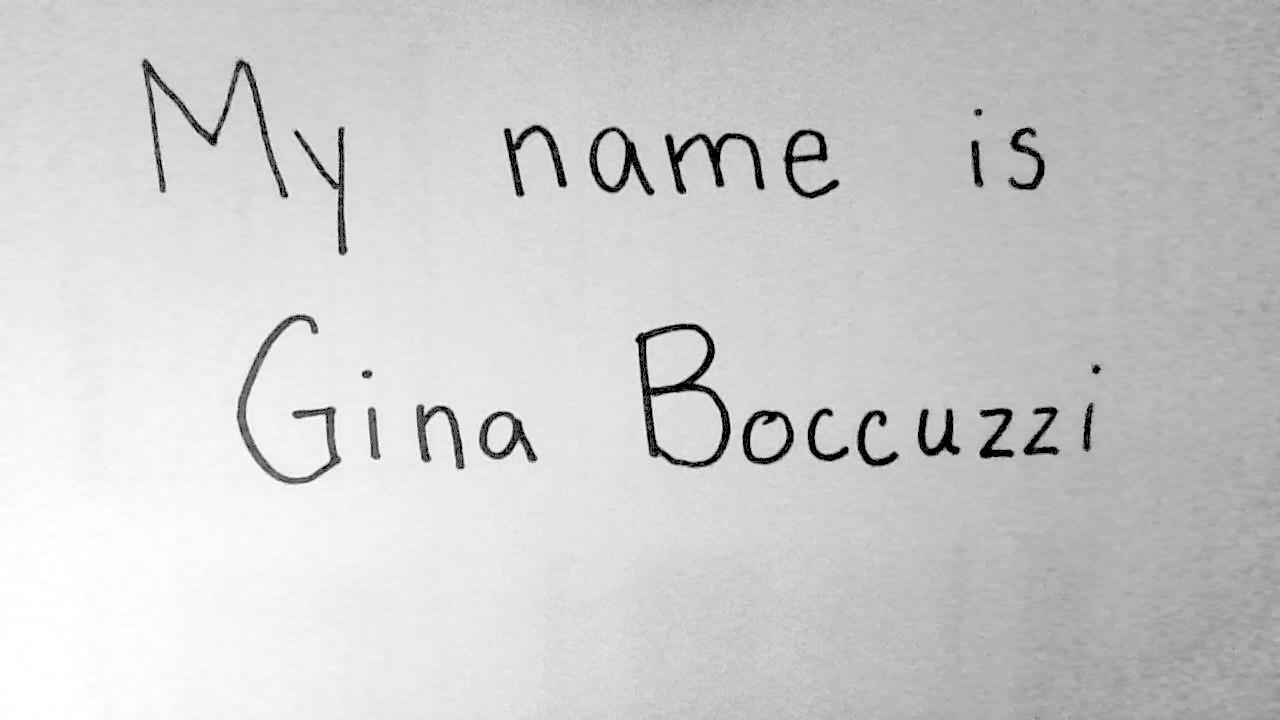 My name is
Gina Boccuzzi